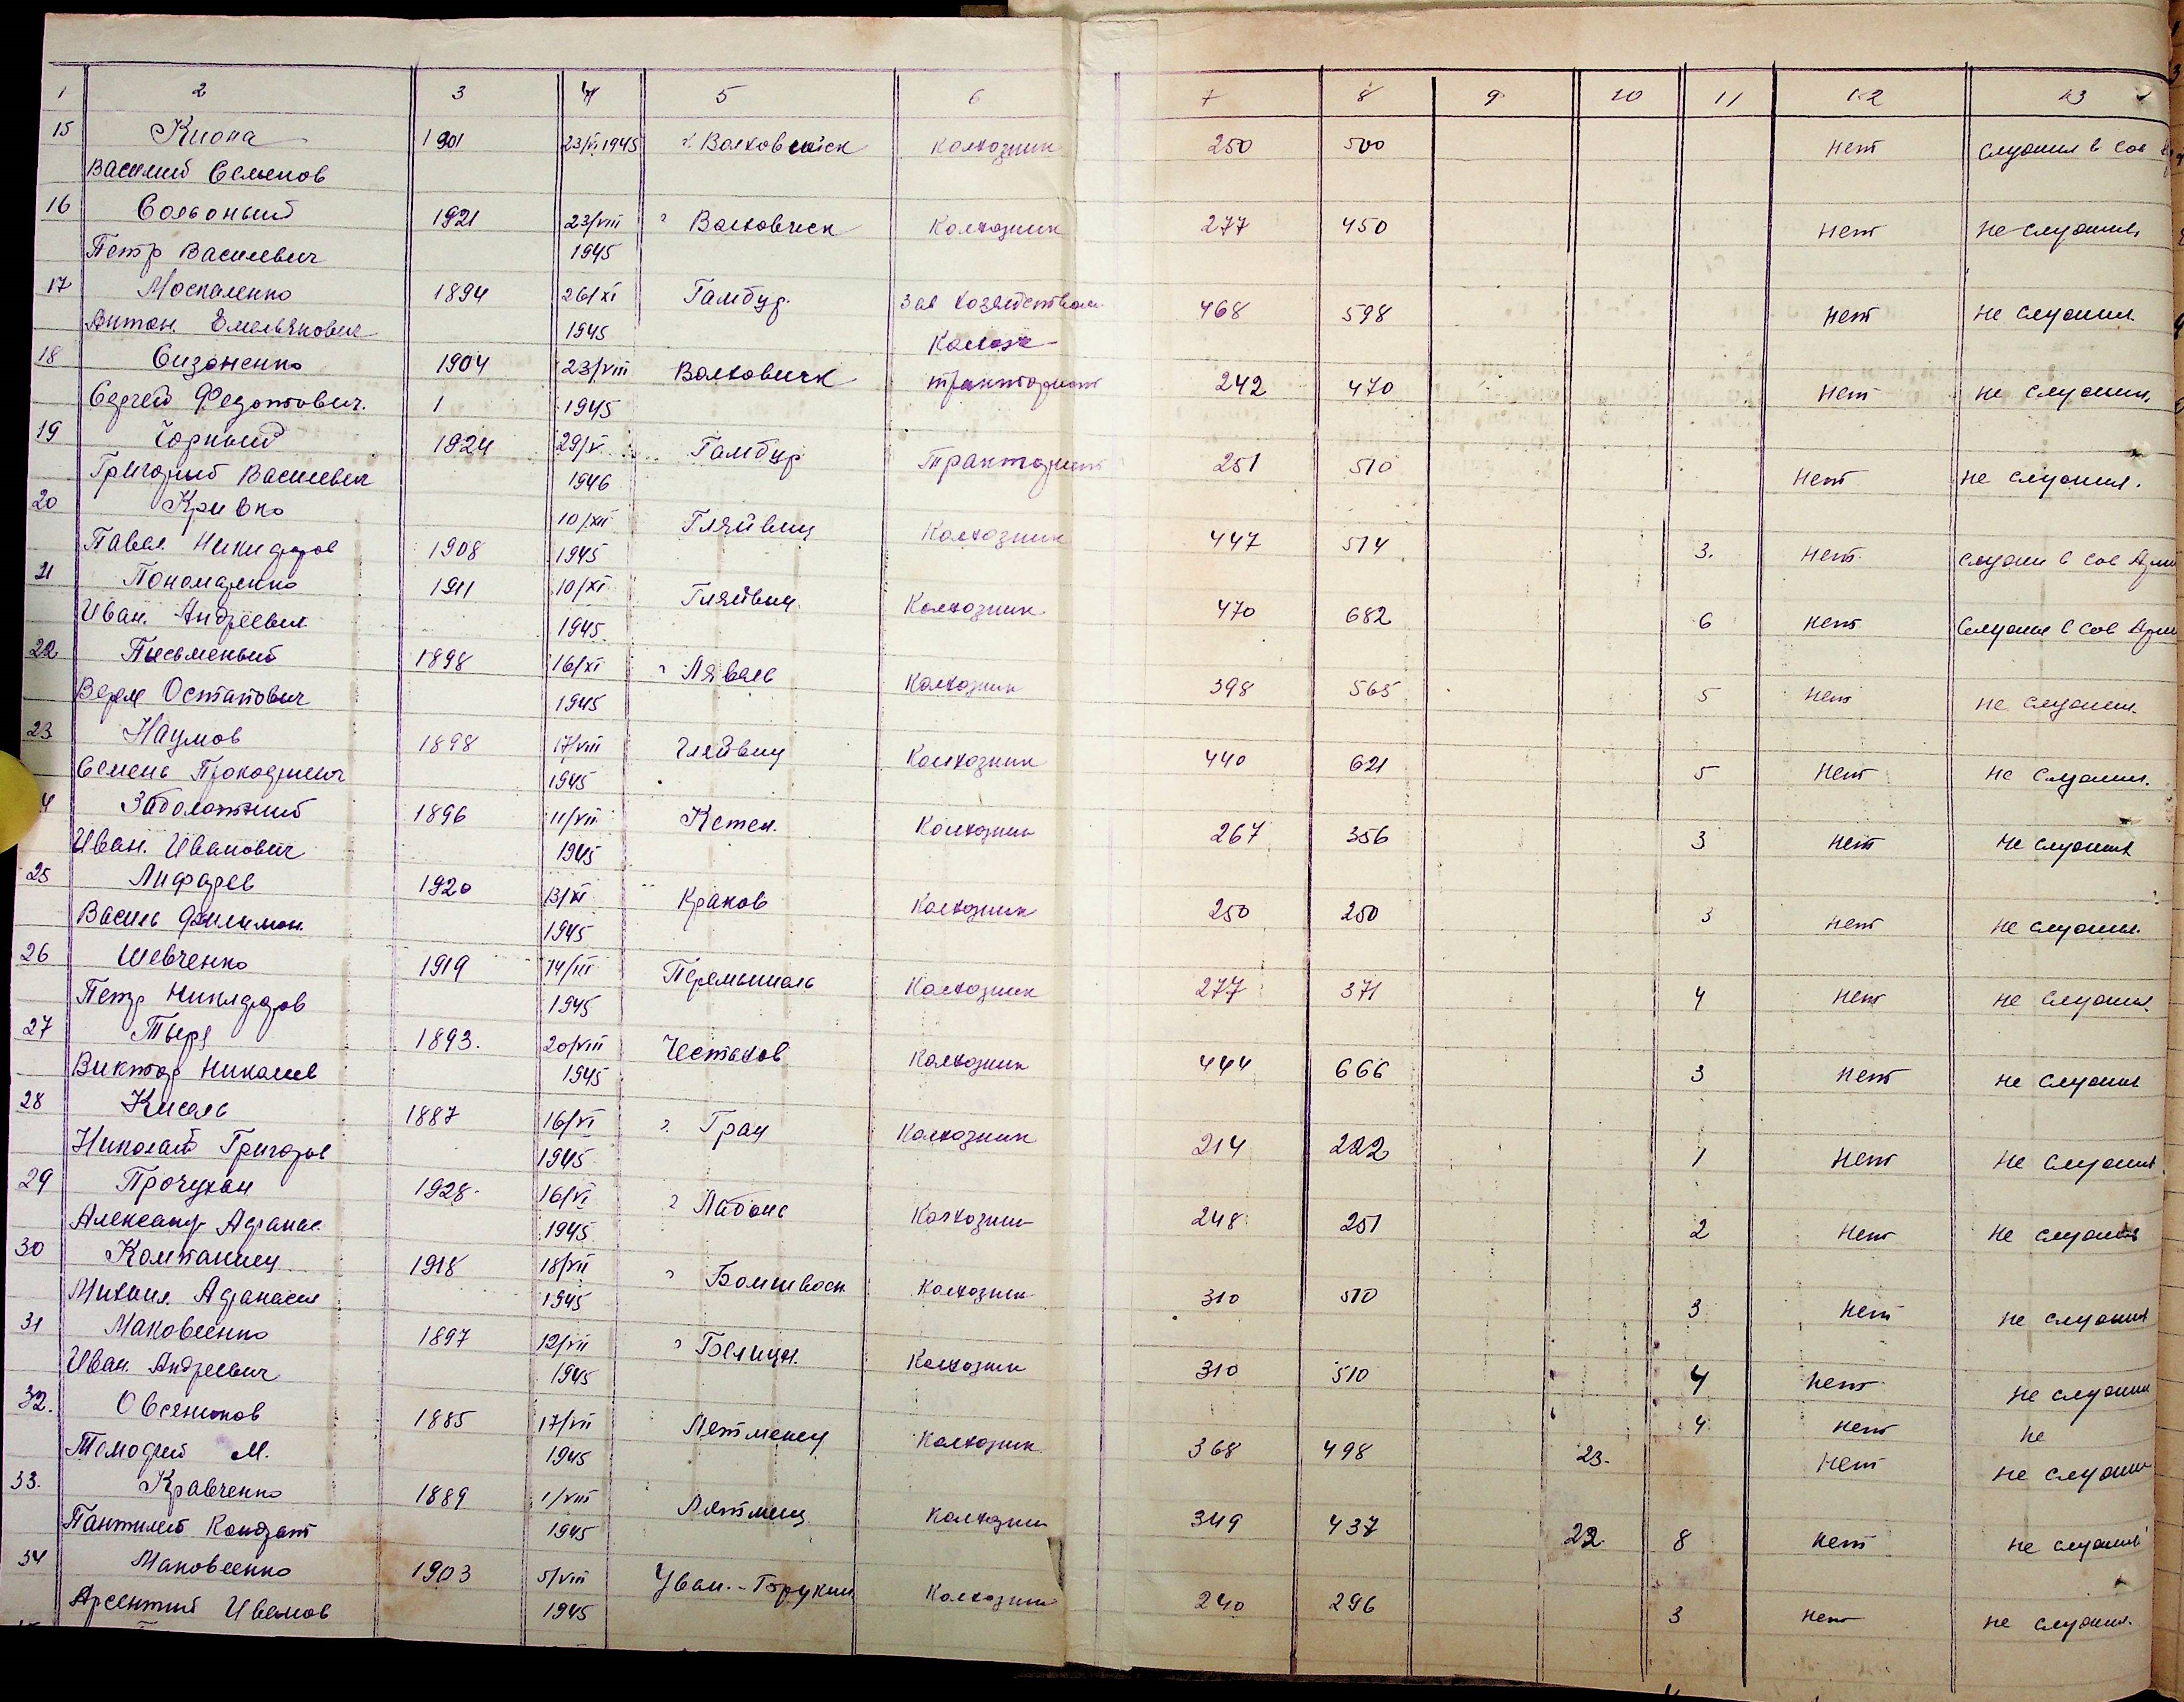 1 2 3 4 5 6 7 8 9 10 11 12 13
15 Киопа 1901 23/VI 1945 г. Волковыск колхозник 250 500 нет служил в сов
Василий Семенов
16 Сольоный 1921 23/VIII г Волковыск колхозник 277 450 нет не служил
Петр Василевич 1945
17 Москаленко 1894 26/XI Гамбур. Зав хозяйством 468 598 нет не служил
Антон. Емельянович 1945 колхоза
18 Сизоненко 1904 23/VIII Волковыск тракторист 242 470 нет не служил.
Сергей Федотович. 1 1945
19 Чорный 1924 29/V Гамбур тракторист 251 510 нет не служил.
Григорий Василевич 1946
20 Кривко 10/XII Глейвиц колхозник 447 514 3. нет. служил в сов Арми
Павел Никифоров 1908 1945
21 Пономаренко 1911 10/XI Глейвиц. колхозник 470 682 6 нет служил в сов Арми
Иван. Андреевич 1945.
22 Письменый 1898 16/XI г колхозник 398 565 5 нет не служил.
Остапович 1945
23 Наумов 1898 17/VIII Глейвиц колхозник 440 621 5 нет не служил.
Семень Прокофиевич 1945
4 Заболотний 1896 11/VII колхозник 267 356 3 нет не служил
Иван. Иванович 1945
25 Лифарев 1920 13/XI Краков колхозник 250 250 3 нет не служил.
Василь Филимон. 1945
26 Шевченко 1919 14/III Перемышль колхозник 277 371 4 нет не служил
Петр Никифоров 1945
27 Тыря 1893. 20/VIII Честахов колхозник 444 666 3 нет не служил
Виктор Николаев 1945
28 Кисель 1887 16/VI г. Грац колхозник 214 222 1 нет не служил
Николай Григоров 1945
29 Прочухан 1928. 16/VI г колхозник 248 251 2 нет не служил
Александр Афанас. 1945
30 Компаниец 1918 18/VII г колхозник 310 510 3 нет не служил
Михаил. Афанасев 1945
31 Маковеенко 1897 12/VII г колхозник 310 510 4 нет не служил
Иван. Андреевич 1945
4 нет не
32. Овсяников 1885 17/VII колхозник 368 498 23. нет не служил
Тимофей М. 1945
33. Кравченко 1889 1/VIII колхозник 349 437 22. 8 нет не служил
Пантилей Кондрат 1945
34 Маковеенко 1903 5/VIII колхозник 240 296 3 нет не служил.
Арсентий Иванов 1945